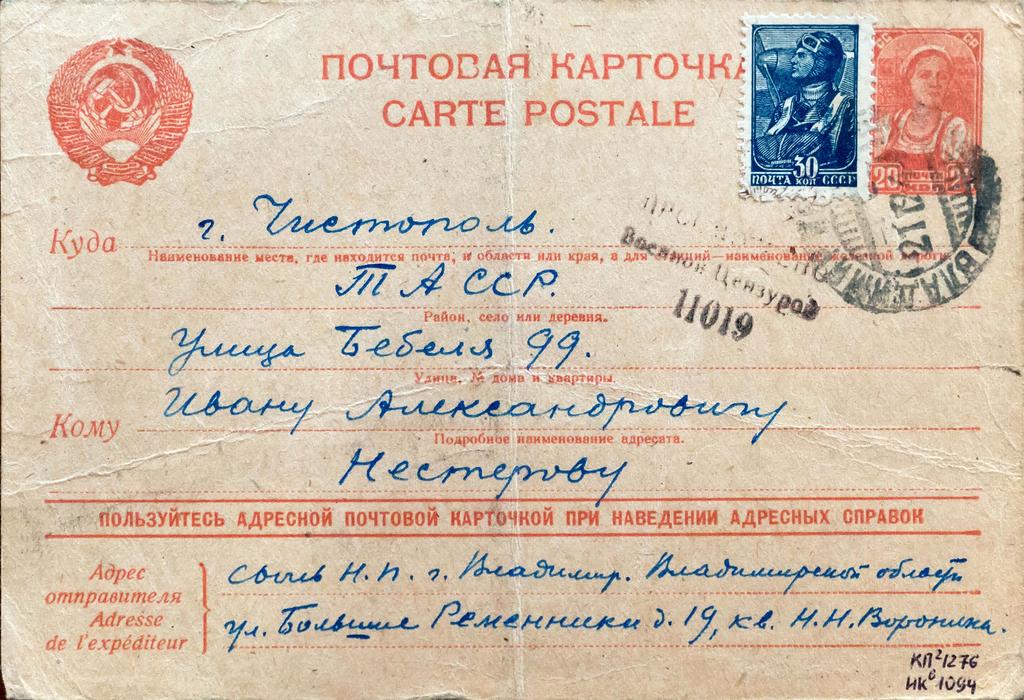 ПОЧТОВАЯ КАРТОЧКА
CARTE POSTALE
30
ПОЧТА КОП СССР
20
Куда
г. Чистополь.
Наименование места, где находится почта, и области или края, а для станций—наименование железной дороги
ТАССР.
Район, село или деревня.
Военной Цензурой
11019
Улица Бебеля 99.
Улица, № дома и квартиры.
Кому
Ивану Александровичу
Подробное наименование адресата.
Нестерову
ПОЛЬЗУЙТЕСЬ АДРЕСНОЙ ПОЧТОВОЙ КАРТОЧКОЙ ПРИ НАВЕДЕНИИ АДРЕСНЫХ СПРАВОК
Адрес
отправителя
Adresse
de l'expéditeur
Н.П. г. Владимир. Владимирской области
ул. Большие Ременники д. 19, кв. Н.Н. Воронина.
КП² 1276
ИК⁸ 1094